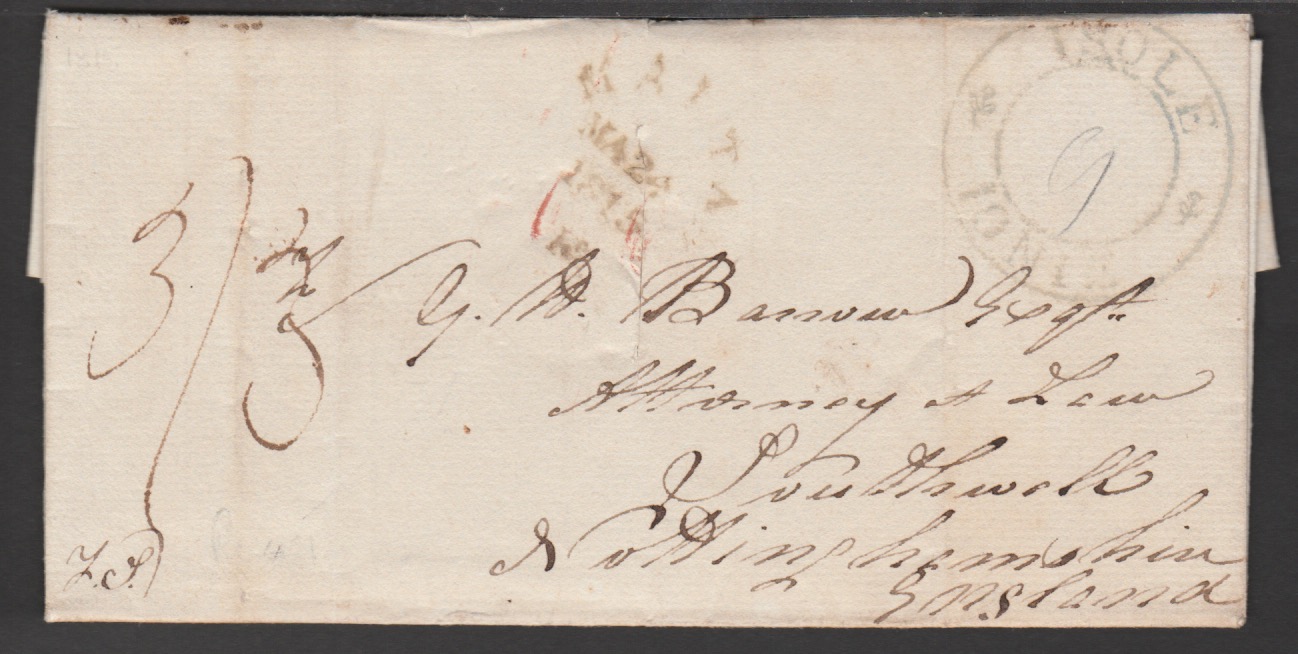 ISOLE
IONIE
9
MALTA
MA24
3/3
G. H. Barrow Esqr.
Attorney at Law
Southwell
Nottinghamshire
England